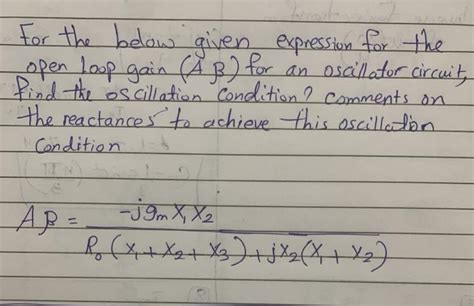 For the below given expression for the
open loop gain (A β) for an oscillator circuit,
find the oscillation condition? comments on
the reactances to achieve this oscillation
condition
Aβ = -jgm X1 X2 / R0 (X1 + X2 + X3) + jX2 (X1 + X2)